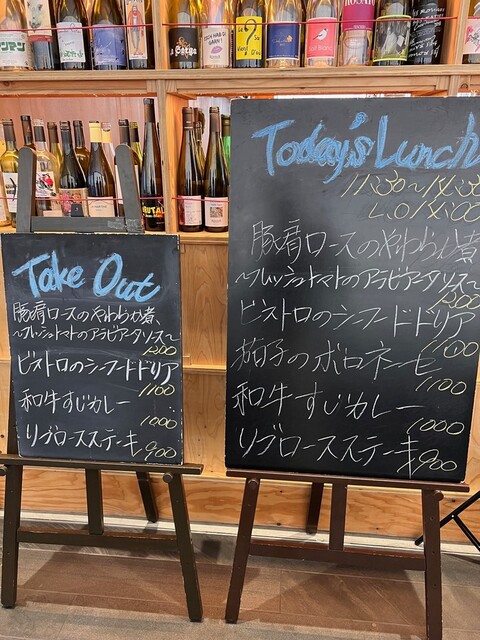 Take Out
豚肩ロースのやわらか煮
〜フレッシュトマトのアラビアータソース〜
1200
ビストロのシーフードドリア
1100
和牛すじカレー
1000
リブロースステーキ
900
Today's Lunch
11:30〜14:30
L.O 14:00
豚肩ロースのやわらか煮
〜フレッシュトマトのアラビアータソース〜
1200
ビストロのシーフードドリア
1100
茄子のボロネーゼ
1100
和牛すじカレー
1000
リブロースステーキ
900